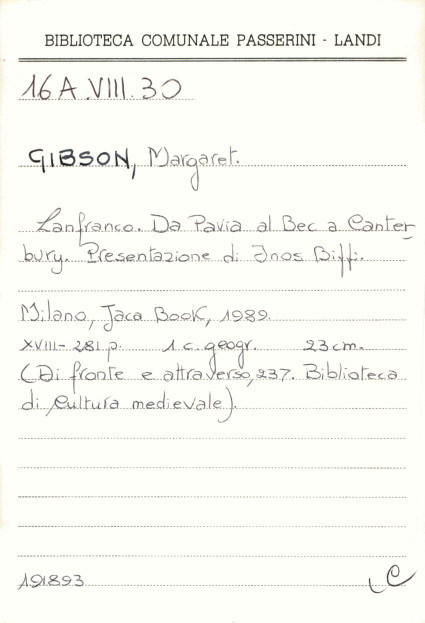 BIBLIOTECA COMUNALE PASSERINI - LANDI
16 A.VIII.30
GIBSON, Margaret.
Lanfranco. Da Pavia al Bec a Canter-
bury. Presentazione di Inos Biffi.
Milano, Jaca Book, 1989.
XVIII-281 p. 1 c. geogr. 23 cm.
(Di fronte e attraverso, 237. Biblioteca
di Cultura medievale).
191893 C